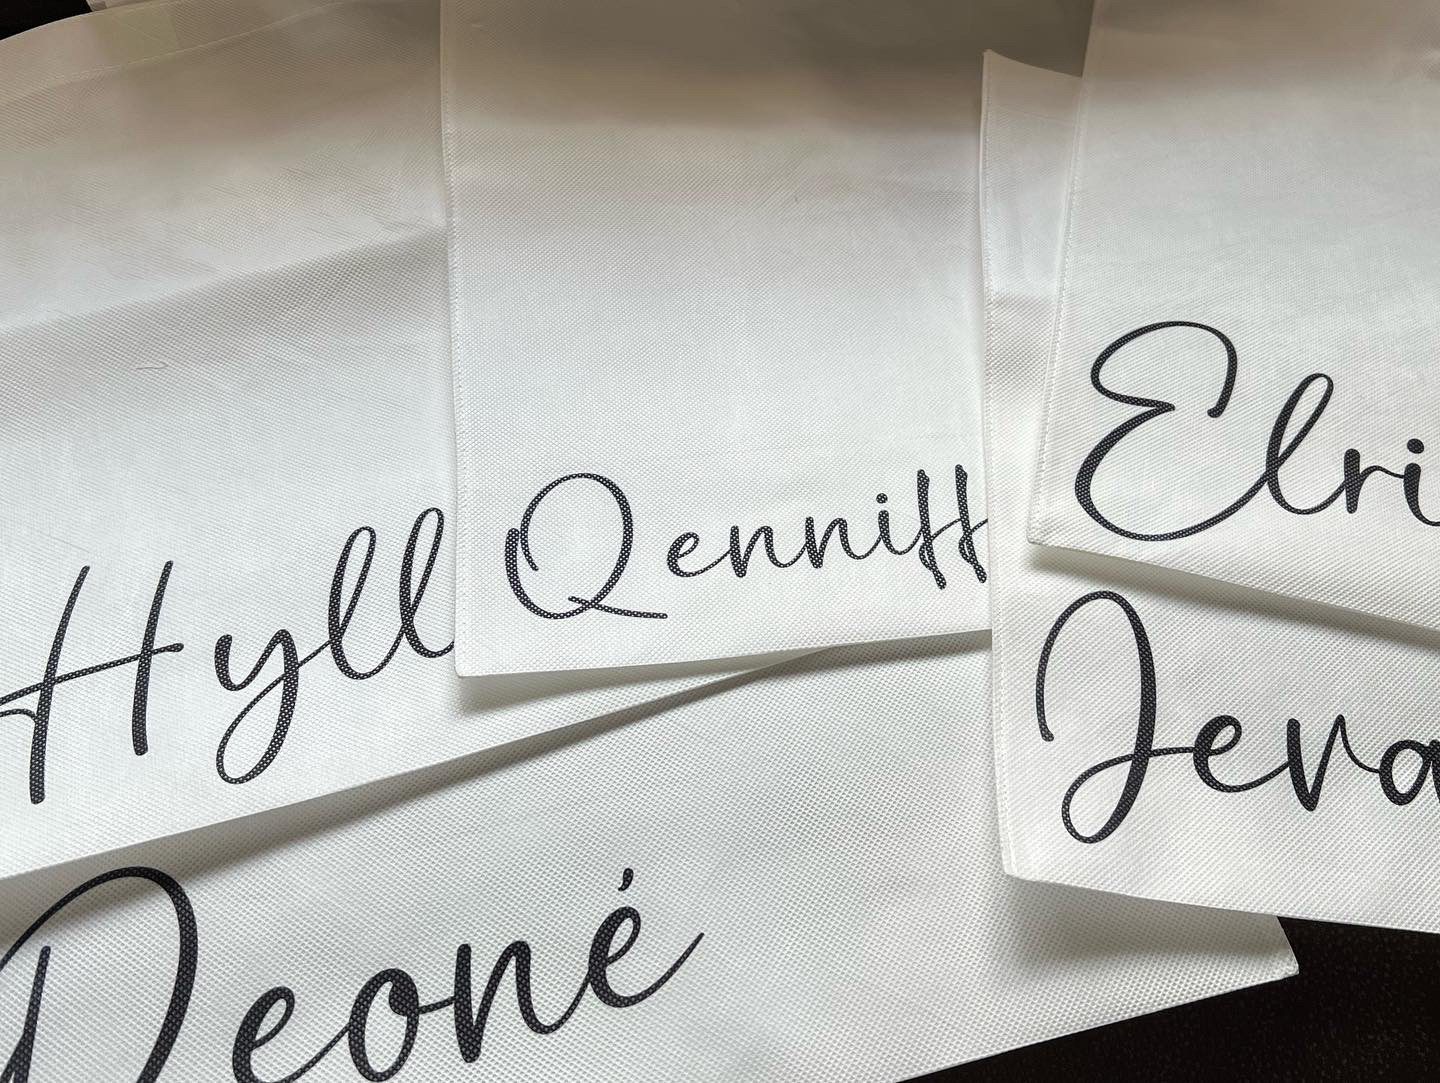 Elri
Qenniff
Hyll
Jera
Deoné